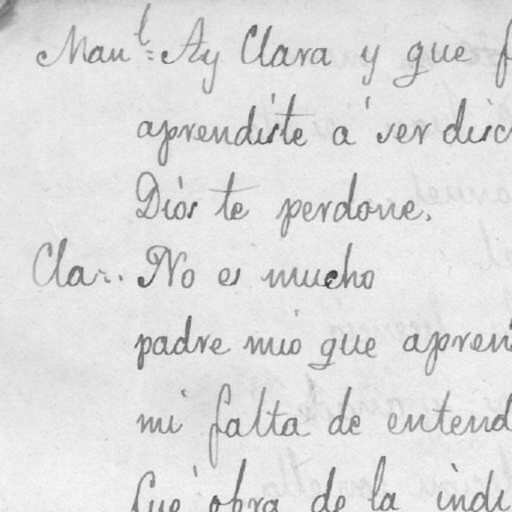 Man.l= Ay Clara y que f
aprendiste á ser disc
Diós te perdone.
Cla=. No es mucho
padre mio que apren
mi falta de entend
fué obra de la indi